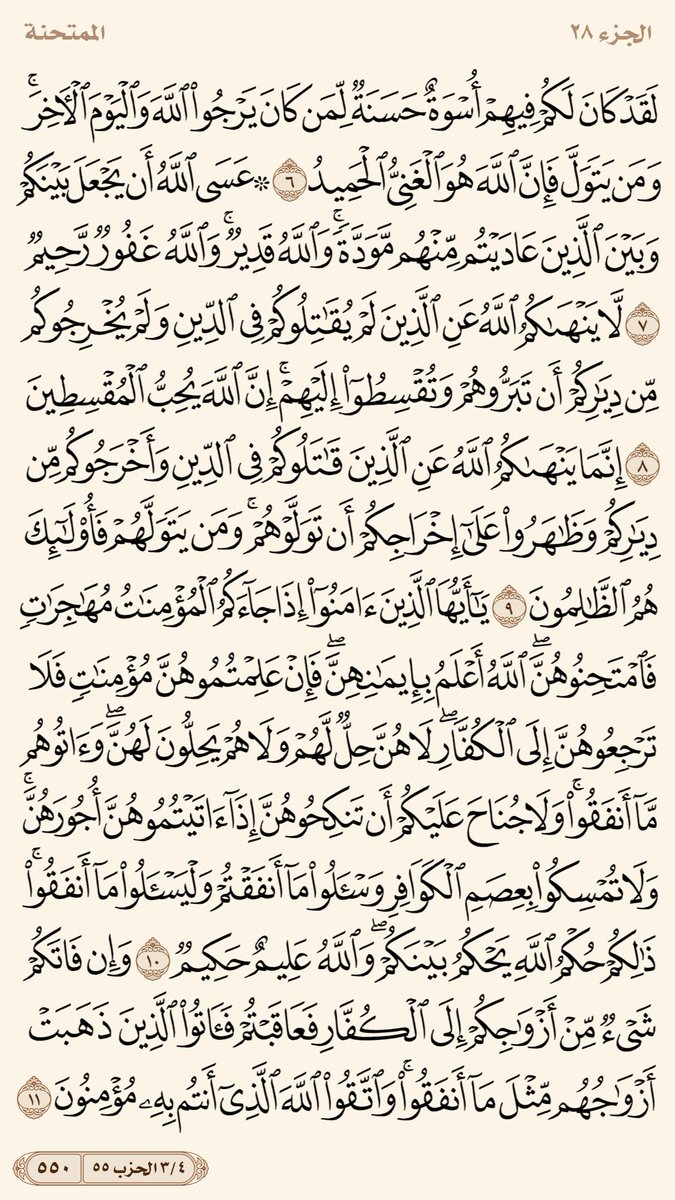 الجزء ٢٨
الممتحنة
لَقَدۡ كَانَ لَكُمۡ فِيهِمۡ أُسۡوَةٌ حَسَنَةٞ لِّمَن كَانَ يَرۡجُواْ ٱللَّهَ وَٱلۡيَوۡمَ ٱلۡأٓخِرَۚ
وَمَن يَتَوَلَّ فَإِنَّ ٱللَّهَ هُوَ ٱلۡغَنِيُّ ٱلۡحَمِيدُ ٦ ۞ عَسَى ٱللَّهُ أَن يَجۡعَلَ بَيۡنَكُمۡ
وَبَيۡنَ ٱلَّذِينَ عَادَيۡتُم مِّنۡهُم مَّوَدَّةٗۚ وَٱللَّهُ قَدِيرٞۚ وَٱللَّهُ غَفُورٞ رَّحِيمٞ
٧ لَّا يَنۡهَىٰكُمُ ٱللَّهُ عَنِ ٱلَّذِينَ لَمۡ يُقَٰتِلُوكُمۡ فِي ٱلدِّينِ وَلَمۡ يُخۡرِجُوكُم
مِّن دِيَٰرِكُمۡ أَن تَبَرُّوهُمۡ وَتُقۡسِطُوٓاْ إِلَيۡهِمۡۚ إِنَّ ٱللَّهَ يُحِبُّ ٱلۡمُقۡسِطِينَ
٨ إِنَّمَا يَنۡهَىٰكُمُ ٱللَّهُ عَنِ ٱلَّذِينَ قَٰتَلُوكُمۡ فِي ٱلدِّينِ وَأَخۡرَجُوكُم مِّن
دِيَٰرِكُمۡ وَظَٰهَرُواْ عَلَىٰٓ إِخۡرَاجِكُمۡ أَن تَوَلَّوۡهُمۡۚ وَمَن يَتَوَلَّهُمۡ فَأُوْلَٰٓئِكَ
هُمُ ٱلظَّٰلِمُونَ ٩ يَٰٓأَيُّهَا ٱلَّذِينَ ءَامَنُوٓاْ إِذَا جَآءَكُمُ ٱلۡمُؤۡمِنَٰتُ مُهَٰجِرَٰتٖ
فَٱمۡتَحِنُوهُنَّۖ ٱللَّهُ أَعۡلَمُ بِإِيمَٰنِهِنَّۖ فَإِنۡ عَلِمۡتُمُوهُنَّ مُؤۡمِنَٰتٖ فَلَا
تَرۡجِعُوهُنَّ إِلَى ٱلۡكُفَّارِۖ لَا هُنَّ حِلّٞ لَّهُمۡ وَلَا هُمۡ يَحِلُّونَ لَهُنَّۖ وَءَاتُوهُم
مَّآ أَنفَقُواْۚ وَلَا جُنَاحَ عَلَيۡكُمۡ أَن تَنكِحُوهُنَّ إِذَآ ءَاتَيۡتُمُوهُنَّ أُجُورَهُنَّۚ
وَلَا تُمۡسِكُواْ بِعِصَمِ ٱلۡكَوَافِرِ وَسۡـَٔلُواْ مَآ أَنفَقۡتُمۡ وَلۡيَسۡـَٔلُواْ مَآ أَنفَقُواْۚ
ذَٰلِكُمۡ حُكۡمُ ٱللَّهِ يَحۡكُمُ بَيۡنَكُمۡۖ وَٱللَّهُ عَلِيمٌ حَكِيمٞ ١٠ وَإِن فَاتَكُمۡ
شَيۡءٞ مِّنۡ أَزۡوَٰجِكُمۡ إِلَى ٱلۡكُفَّارِ فَعَاقَبۡتُمۡ فَـَٔاتُواْ ٱلَّذِينَ ذَهَبَتۡ
أَزۡوَٰجُهُم مِّثۡلَ مَآ أَنفَقُواْۚ وَٱتَّقُواْ ٱللَّهَ ٱلَّذِيٓ أَنتُم بِهِۦ مُؤۡمِنُونَ ١١
٣/٤ الحزب ٥٥
٥٥٠